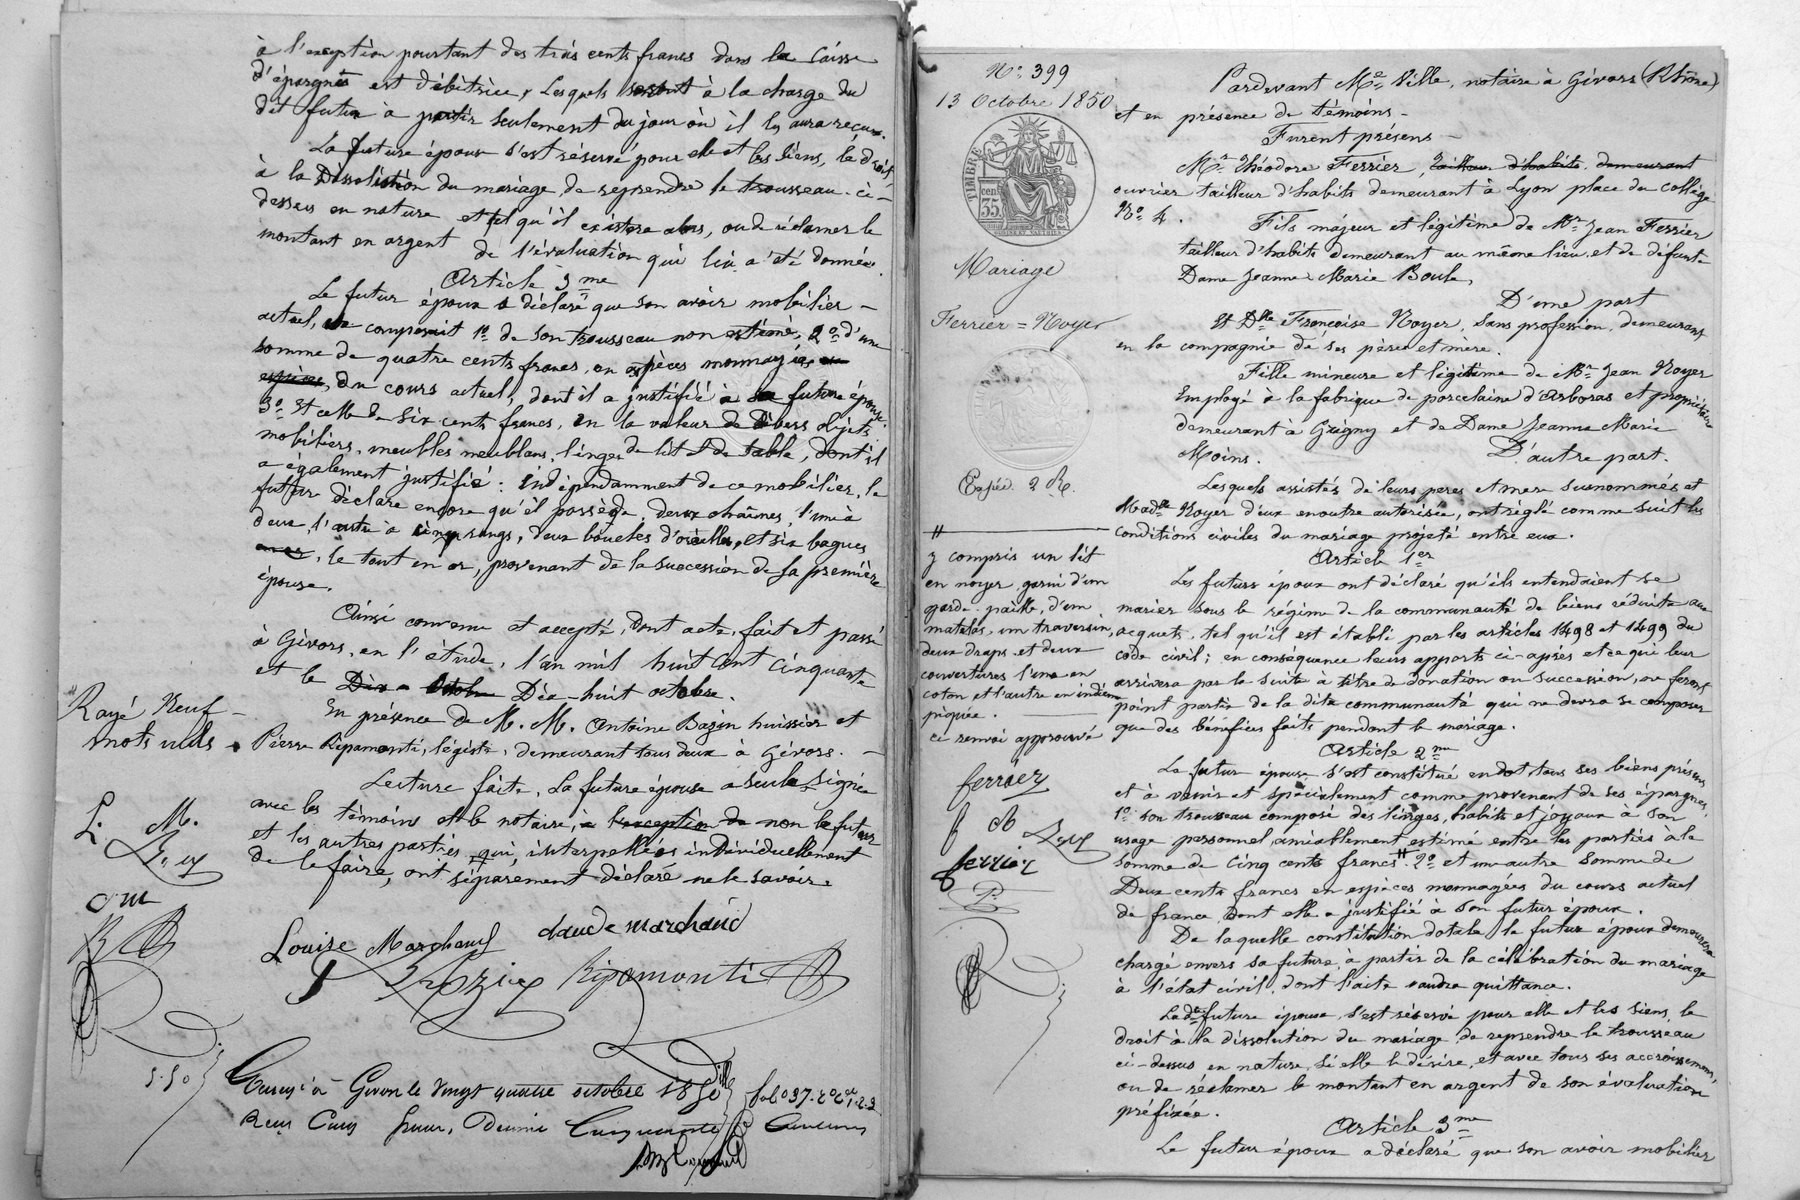 à l'exception pourtant des trois cents francs dans la Caisse
d'épargnes est débitrice, Lesquels seront à la charge du
dit futur à partir seulement du jour où il les aura reçus.
La future épouse s'est réservé pour elle et les siens, le droit
à la Dissolution du mariage, de reprendre le trousseau ci-
dessus en nature et tel qu'il existera alors, ou de réclamer le
montant en argent de l'évaluation qui lui a été donnée.
Article 3me
Le futur époux a déclaré que son avoir mobilier
actuel, se composait 1o de son trousseau non estimé, 2o d'une
somme de quatre cents francs, en espèces monnayées en
espèces, du cours actuel, dont il a justifié à sa future épouse.
3o Et celle de six cents francs, en la valeur de divers objets
mobiliers, meubles meublans, linges de lit et de table, dont il
a également justifié : indépendamment de ce mobilier, le
futur déclare encore qu'il possède, deux chaînes, l'une à
deux, l'autre à cinq rangs, deux boucles d'oreilles, et six bagues
le tout en or, provenant de la succession de sa première
épouse.
Ainsi convenu et accepté, dont acte, fait et passé
à Givors, en l'étude, l'an mil huit cent cinquante
et le Dix Octobre Dix-huit octobre.
En présence de M. M. Antoine Bazin huissier et
Pierre Ripamonti, légiste, demeurant tous deux à Givors.
Lecture faite, La future épouse a seule signé
avec les témoins et le notaire, à l'exception de non le futur
et les autres parties qui, interpellées individuellement
de le faire, ont séparement déclaré ne le savoir.
Rayé Neuf
mots nuls
L. M.
Louise Marchand claude marchand
Ripamonti
5.50
à Givors le vingt quatre octobre 1850 folo 37
No 399
13 Octobre 1850
TIMBRE
35 cen
Mariage
Ferrier = Noyer
Expéd. 2 R.
y compris un lit
en noyer garni d'un
garde-paille, d'un
matelas, un traversin,
deux draps et deux
couvertures l'une en
coton et l'autre en indienne
piquée.
ce renvoi approuvé
ferrier
ferrier
Pardevant Me Ville, notaire à Givors (Rhône)
et en présence de témoins
Furent présens
Mr Théodore Ferrier, tailleur d'habits, demeurant
ouvrier tailleur d'habits demeurant à Lyon place du collège
No 4.
Fils majeur et légitime de Mr Jean Ferrier
tailleur d'habits demeurant au même lieu, et de défunte
Dame Jeanne Marie Boule,
D'une part
Et Dlle Françoise Noyer, sans profession, demeurant
en la compagnie de ses père et mère.
Fille mineure et légitime de Mr Jean Noyer
Employé à la fabrique de porcelaine d'Arboras et propriétaire
demeurant à Grigny et de Dame Jeanne Marie
Moins. D'autre part.
Lesquels assistés de leurs peres et mere susnommés et
Madlle Noyer d'eux en outre autorisée, ont réglé comme suit les
conditions civiles du mariage projeté entre eux.
Article 1er
Les futurs époux ont déclaré qu'ils entendaient se
marier sous le régime de la communauté de biens réduite aux
acquets, tel qu'il est établi par les articles 1498 et 1499 du
code civil; en conséquence leurs apports ci-après et ce qui leur
arrivera par la suite à titre de donation ou succession, ne feront
point partie de la dite communauté qui ne devra se composer
que des bénéfices faits pendant le mariage.
Article 2me
La future épouse s'est constitué en dot tous ses biens présens
et à venir et spécialement comme provenant de ses épargnes,
1o son trousseau composé des linges, habits et joyaux à son
usage personnel, amiablement estimé entre les parties à la
somme de cinq cents francs # 2o et une autre somme de
Deux cents francs en espèces monnayées du cours actuel
de france, dont elle a justifié à son futur époux.
De laquelle constitution dotale le futur époux demeurera
chargé envers sa future, à partir de la célébration du mariage
à l'état civil, dont l'acte vaudra quittance.
La de future épouse, s'est réservé pour elle et les siens, le
droit à la dissolution du mariage, de reprendre le trousseau
ci-dessus en nature, si elle le désire, et avec tous ses accroissemens,
ou de réclamer le montant en argent de son évaluation
préfixée.
Article 3me
Le futur époux a déclaré que son avoir mobilier